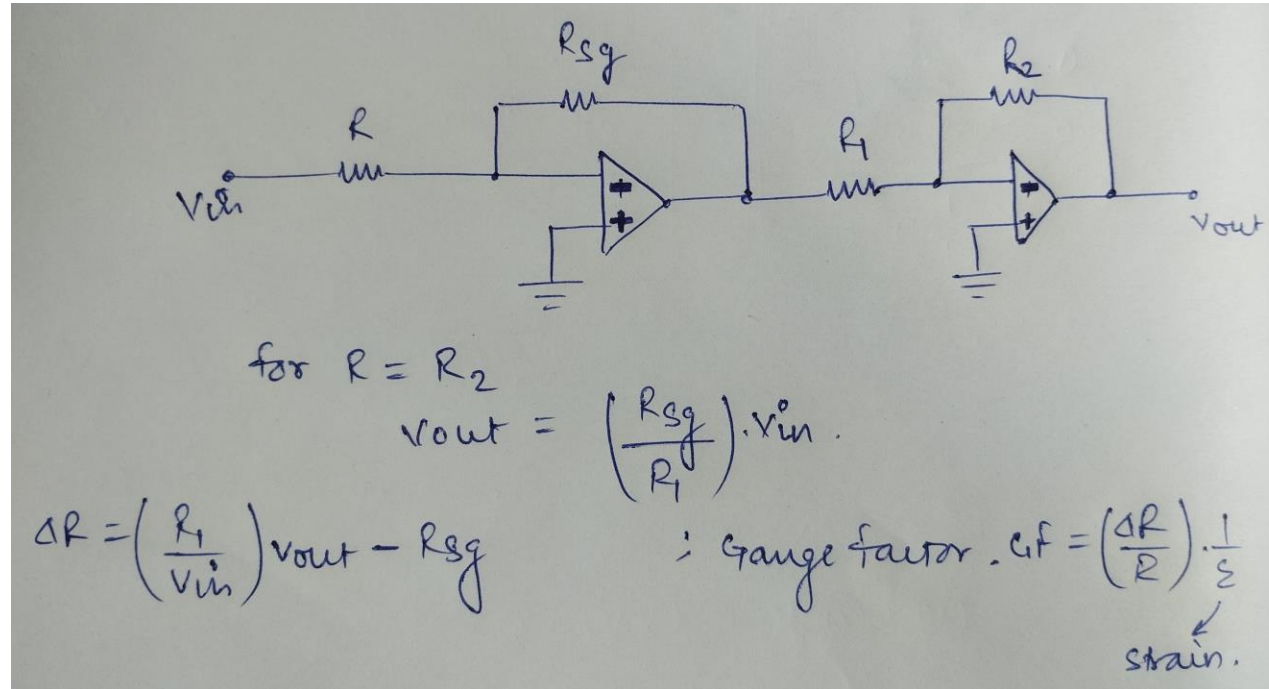 Rsg
R2
R
R1
Vin
-
+
-
+
Vout
for R = R2
Vout = (Rsg/R1).Vin.
ΔR = (R1/Vin) Vout - Rsg ; Gauge factor. GF = (ΔR/R).1/ε
strain.